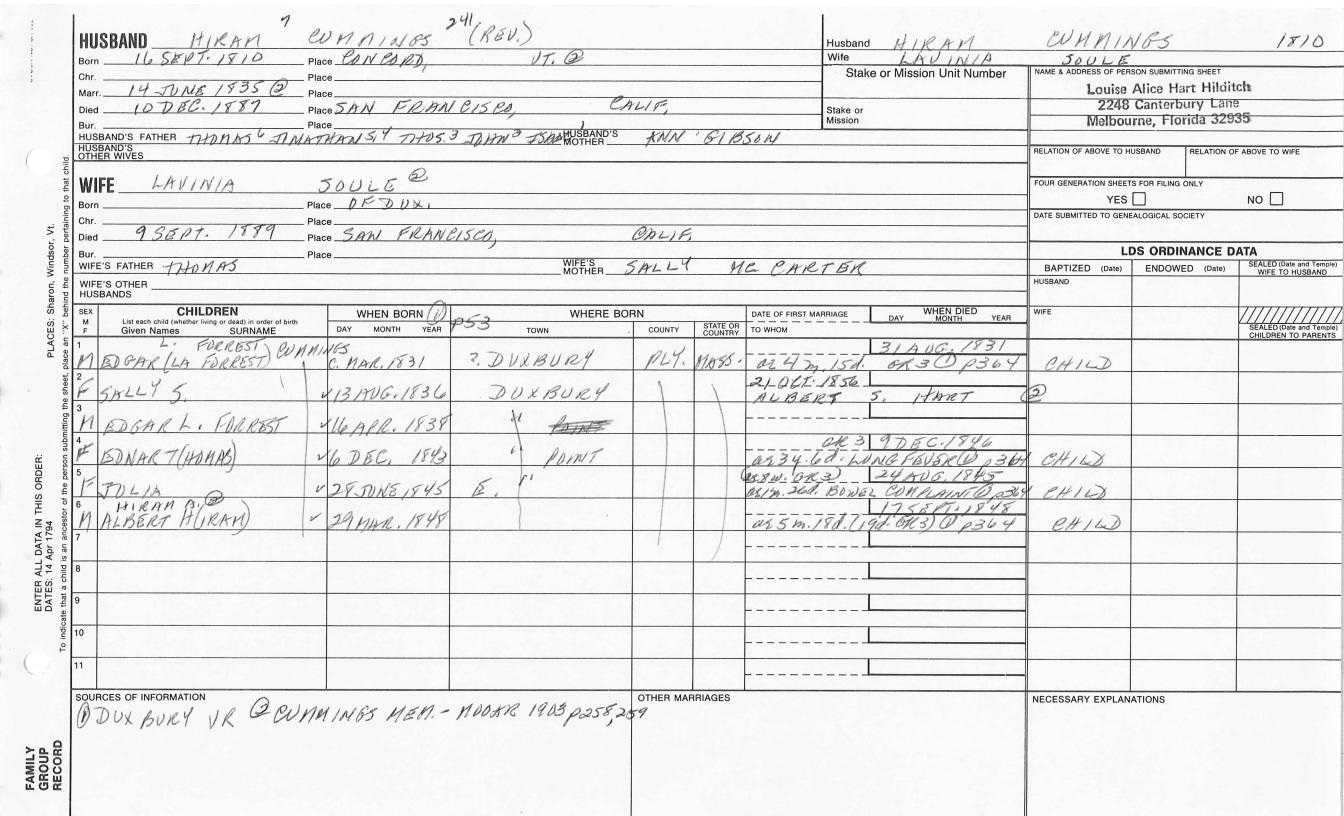 HUSBAND HIRAM 7 CUMMINGS 241 (REV.)
Born 16 SEPT. 1810 Place CONCORD, VT. ②
Chr. Place
Marr. 14 JUNE 1835 ② Place
Died 10 DEC. 1887 Place SAN FRANCISCO, CALIF.
Bur. Place
HUSBAND'S FATHER THOMAS 6 JONATHAN 5,4 THOS. 3 JOHN HUSBAND'S MOTHER ANN GIBSON
HUSBAND'S OTHER WIVES
WIFE LAVINIA SOULE ②
Born Place OF DUX.
Chr. Place
Died 9 SEPT. 1889 Place SAN FRANCISCO, CALIF.
Bur. Place
WIFE'S FATHER THOMAS WIFE'S MOTHER SALLY MC CARTER
WIFE'S OTHER HUSBANDS
Husband HIRAM CUMMINGS 1810
Wife LAVINIA SOULE
Stake or Mission Unit Number
Stake or Mission
NAME & ADDRESS OF PERSON SUBMITTING SHEET
Louise Alice Hart Hilditch
2248 Canterbury Lane
Melbourne, Florida 32935
RELATION OF ABOVE TO HUSBAND RELATION OF ABOVE TO WIFE
FOUR GENERATION SHEETS FOR FILING ONLY
YES NO
DATE SUBMITTED TO GENEALOGICAL SOCIETY
LDS ORDINANCE DATA
BAPTIZED (Date) ENDOWED (Date) SEALED (Date and Temple) WIFE TO HUSBAND
HUSBAND
WIFE
SEALED (Date and Temple) CHILDREN TO PARENTS
SEX M F
CHILDREN
List each child (whether living or dead) in order of birth
Given Names SURNAME
WHEN BORN ① p53
DAY MONTH YEAR
WHERE BORN
TOWN COUNTY STATE OR COUNTRY
DATE OF FIRST MARRIAGE
TO WHOM
WHEN DIED
DAY MONTH YEAR
L. FORREST) CUMMINGS 31 AUG. 1831
1 M EDGAR (LA FORREST) C. MAR. 1831 ? DUXBURY PLY. MASS. ae 4 m. 15d. GR3 ① p364 CHILD
21 OCT. 1856
2 F SALLY S. ✓ 13 AUG. 1836 DUXBURY ALBERT S. HART ②
3 M EDGAR L. FORREST ✓ 16 APR. 1838 "
GR3 9 DEC. 1846
4 F EDNAR T(HOMAS) ✓ 6 DEC. 1843 " POINT ae 3y. 6d. LUNG FEVER ① p364 CHILD
(ae 8w. GR3) 24 AUG. 1845
5 F JULIA ✓ 28 JUNE 1845 E. " ae 1m. 26d. BOWEL COMPLAINT ① p364 CHILD
HIRAM A. ② 17 SEPT. 1848
6 M ALBERT H(IRAM) ✓ 29 MAR. 1848 ae 5 m. 18d. (19d. GR3) ① p364 CHILD
7
8
9
10
11
SOURCES OF INFORMATION
① DUXBURY VR ② CUMMINGS MEM. - MOOAR 1903 p258,259
OTHER MARRIAGES
NECESSARY EXPLANATIONS
FAMILY GROUP RECORD
ENTER ALL DATA IN THIS ORDER:
DATES: 14 Apr 1794
PLACES: Sharon, Windsor, Vt.
To indicate that a child is an ancestor of the person submitting the sheet, place an "X" behind the number pertaining to that child.